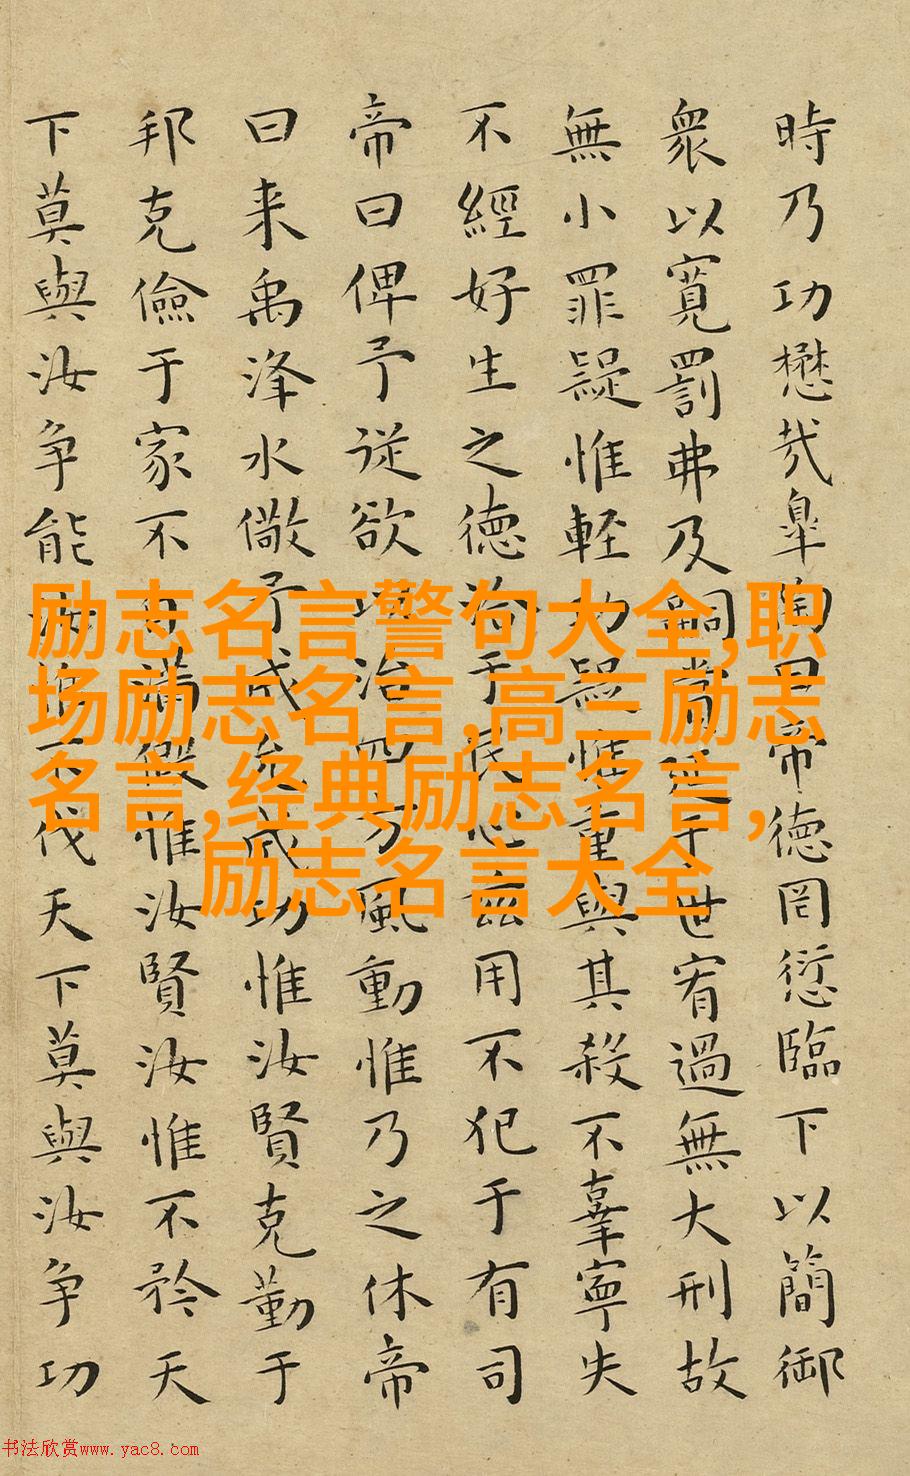 時乃功懋哉皐陶曰帝德罔愆臨下以簡御
衆以寬罰弗及嗣賞延于世宥過無大刑故
無小罪疑惟輕功疑惟重與其殺不辜寧失
不經好生之德洽于民心兹用不犯于有司
帝曰俾予從欲以治四方風動惟乃之休帝
曰来禹洚水儆予成允成功惟汝賢克勤于
邦克儉于家不自滿假惟汝賢汝惟不矜天
下莫與汝争能汝惟不伐天下莫與汝争功
励志名言警句大全,职
场励志名言,高三励志
名言,经典励志名言,
励志名言大全
书法欣赏www.yac8.com